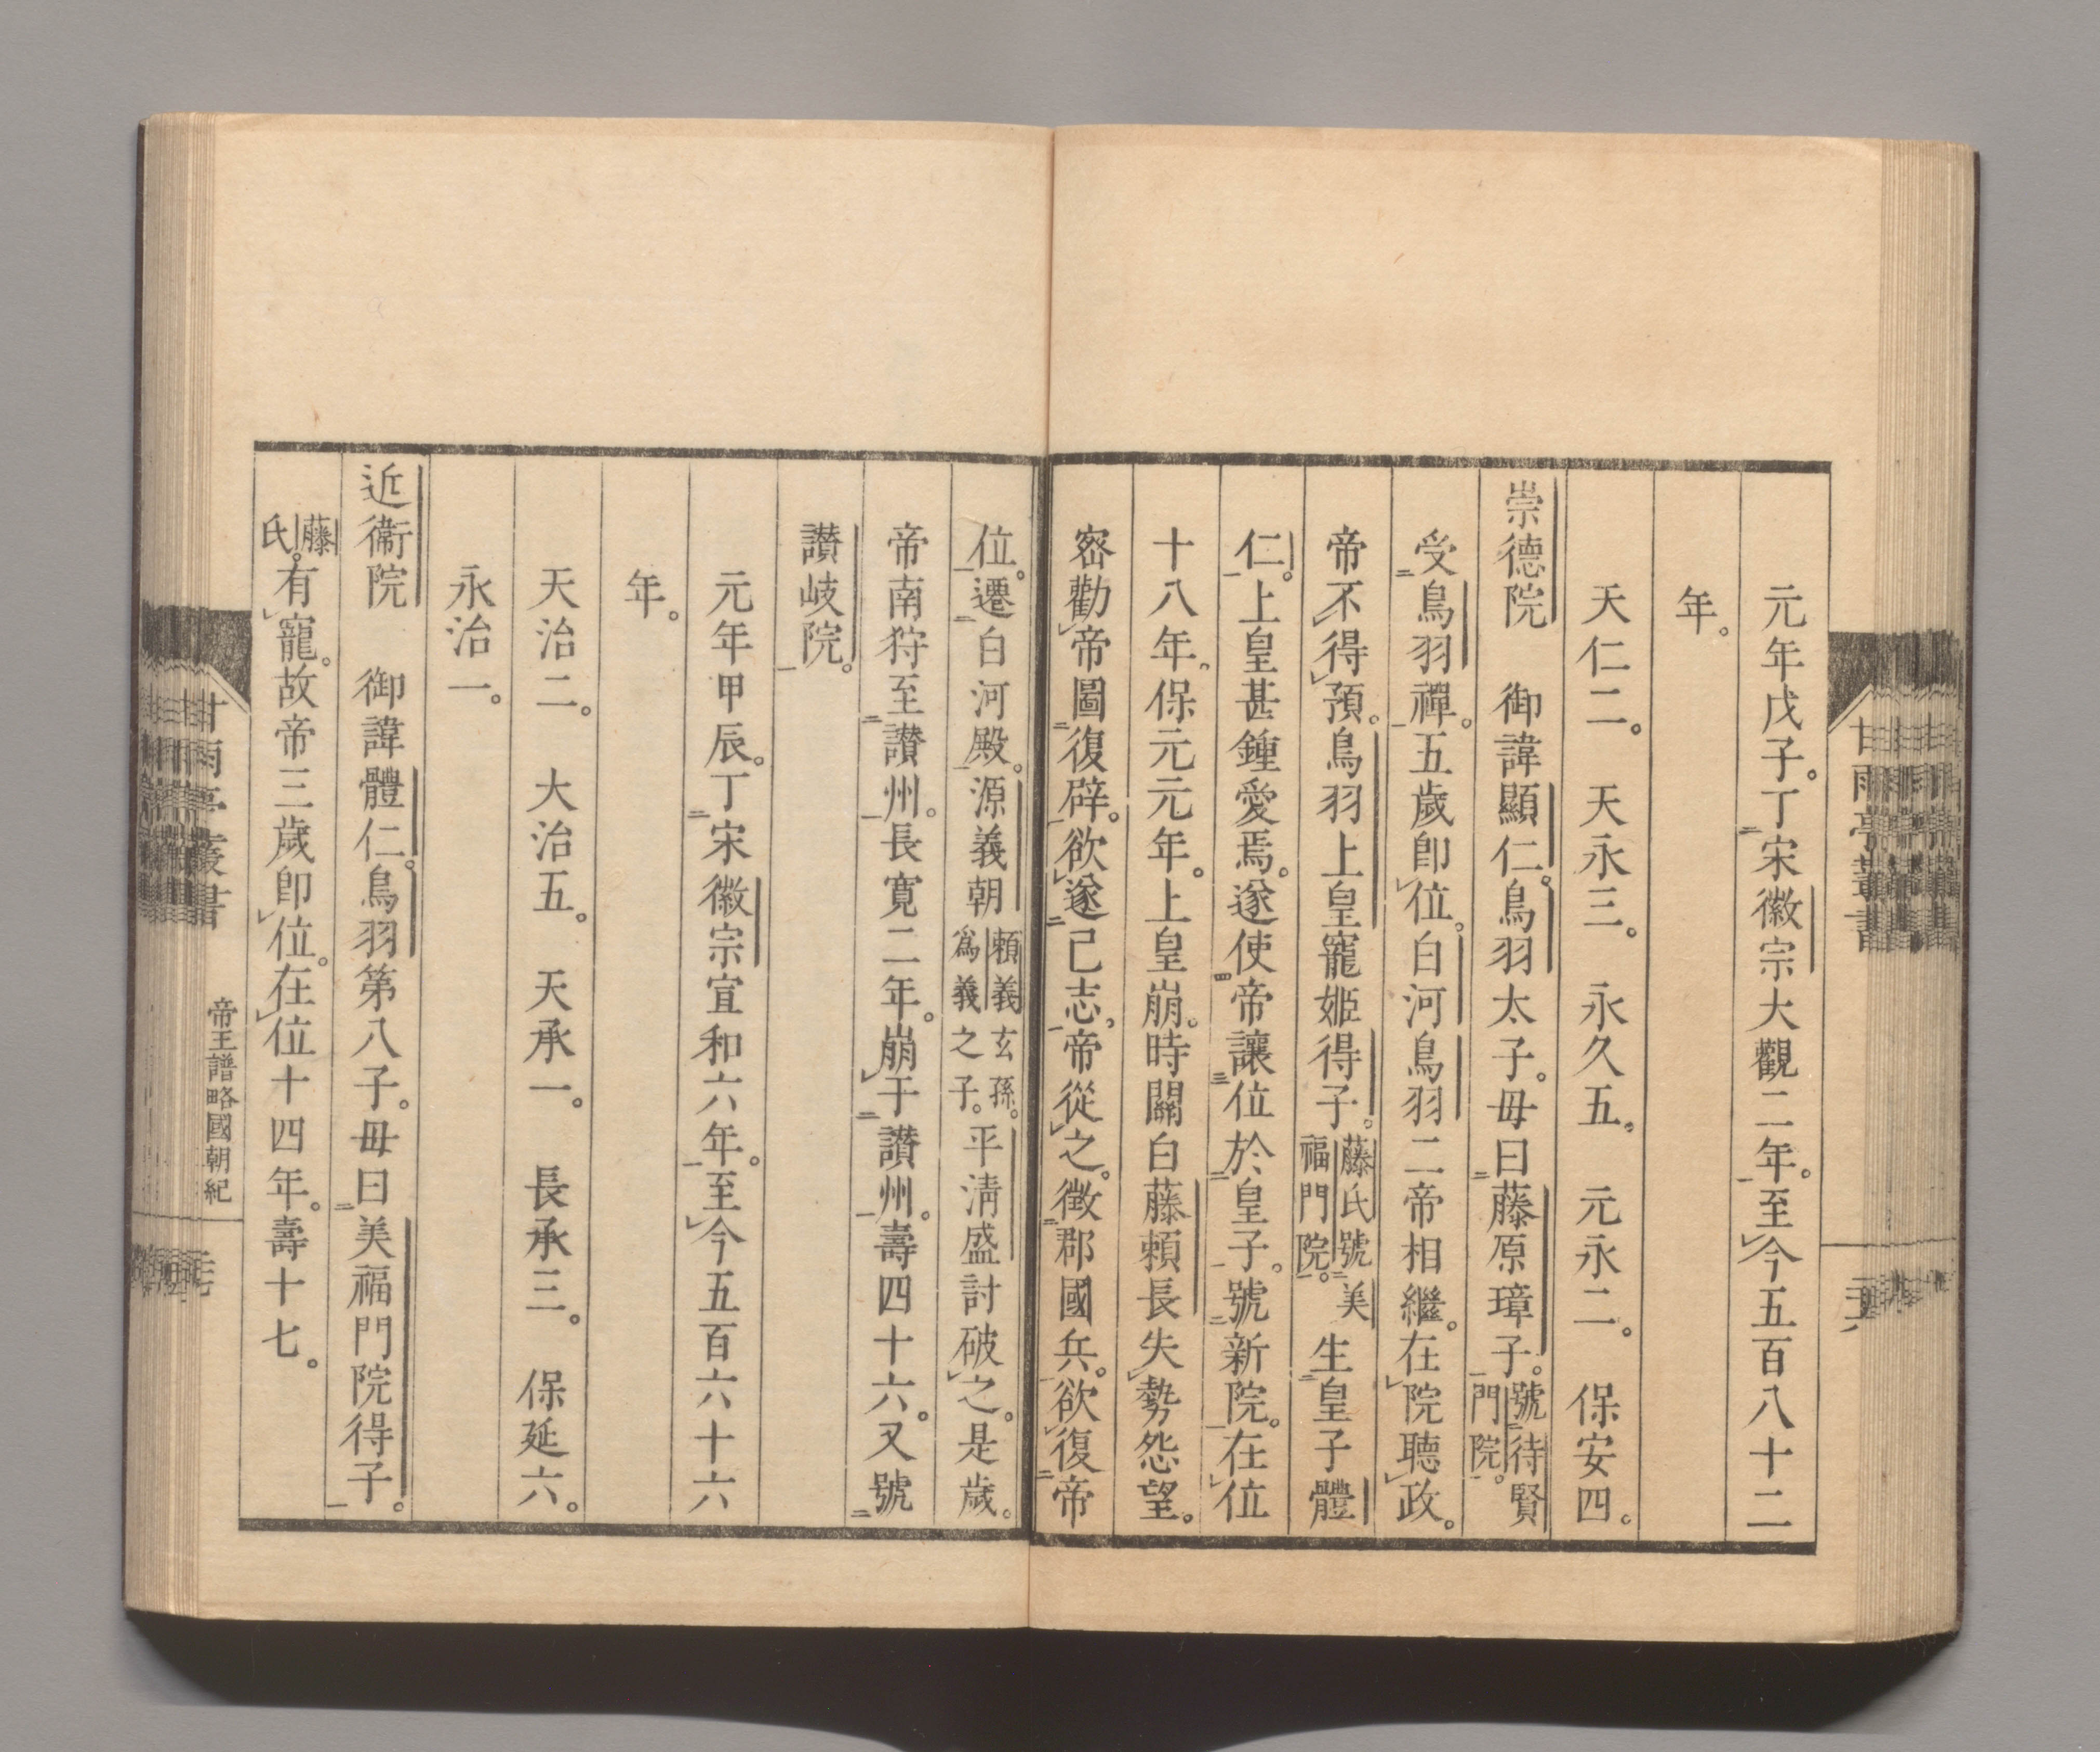 元年戊子。丁宋徽宗大觀二年。至今五百八十二
年。
天仁二。　天永三。　永久五。　元永二。　保安四。
崇德院　御諱顯仁。鳥羽太子。毋曰藤原璋子。號待賢門院。
受鳥羽禪。五歲卽位。白河鳥羽二帝相繼。在院聽政。
帝不得預。鳥羽上皇寵姬得子。藤氏號美福門院。生皇子體
仁。上皇甚鍾愛焉。遂使帝讓位於皇子。號新院。在位
十八年。保元元年。上皇崩。時關白藤賴長失勢怨望。
密勸帝圖復辟。欲遂己志。帝從之。徵郡國兵。欲復帝
位。遷白河殿。源義朝賴義玄孫。爲義之子。平淸盛討破之。是歲。
帝南狩至讃州。長寬二年。崩于讃州。壽四十六。又號
讃岐院。
元年甲辰。丁宋徽宗宣和六年。至今五百六十六
年。
天治二。　大治五。　天承一。　長承三。　保延六。
永治一。
近衞院　御諱體仁。鳥羽第八子。毋曰美福門院得子。
藤氏。有寵。故帝三歲卽位。在位十四年。壽十七。
甘雨亭叢書
帝王譜略國朝紀